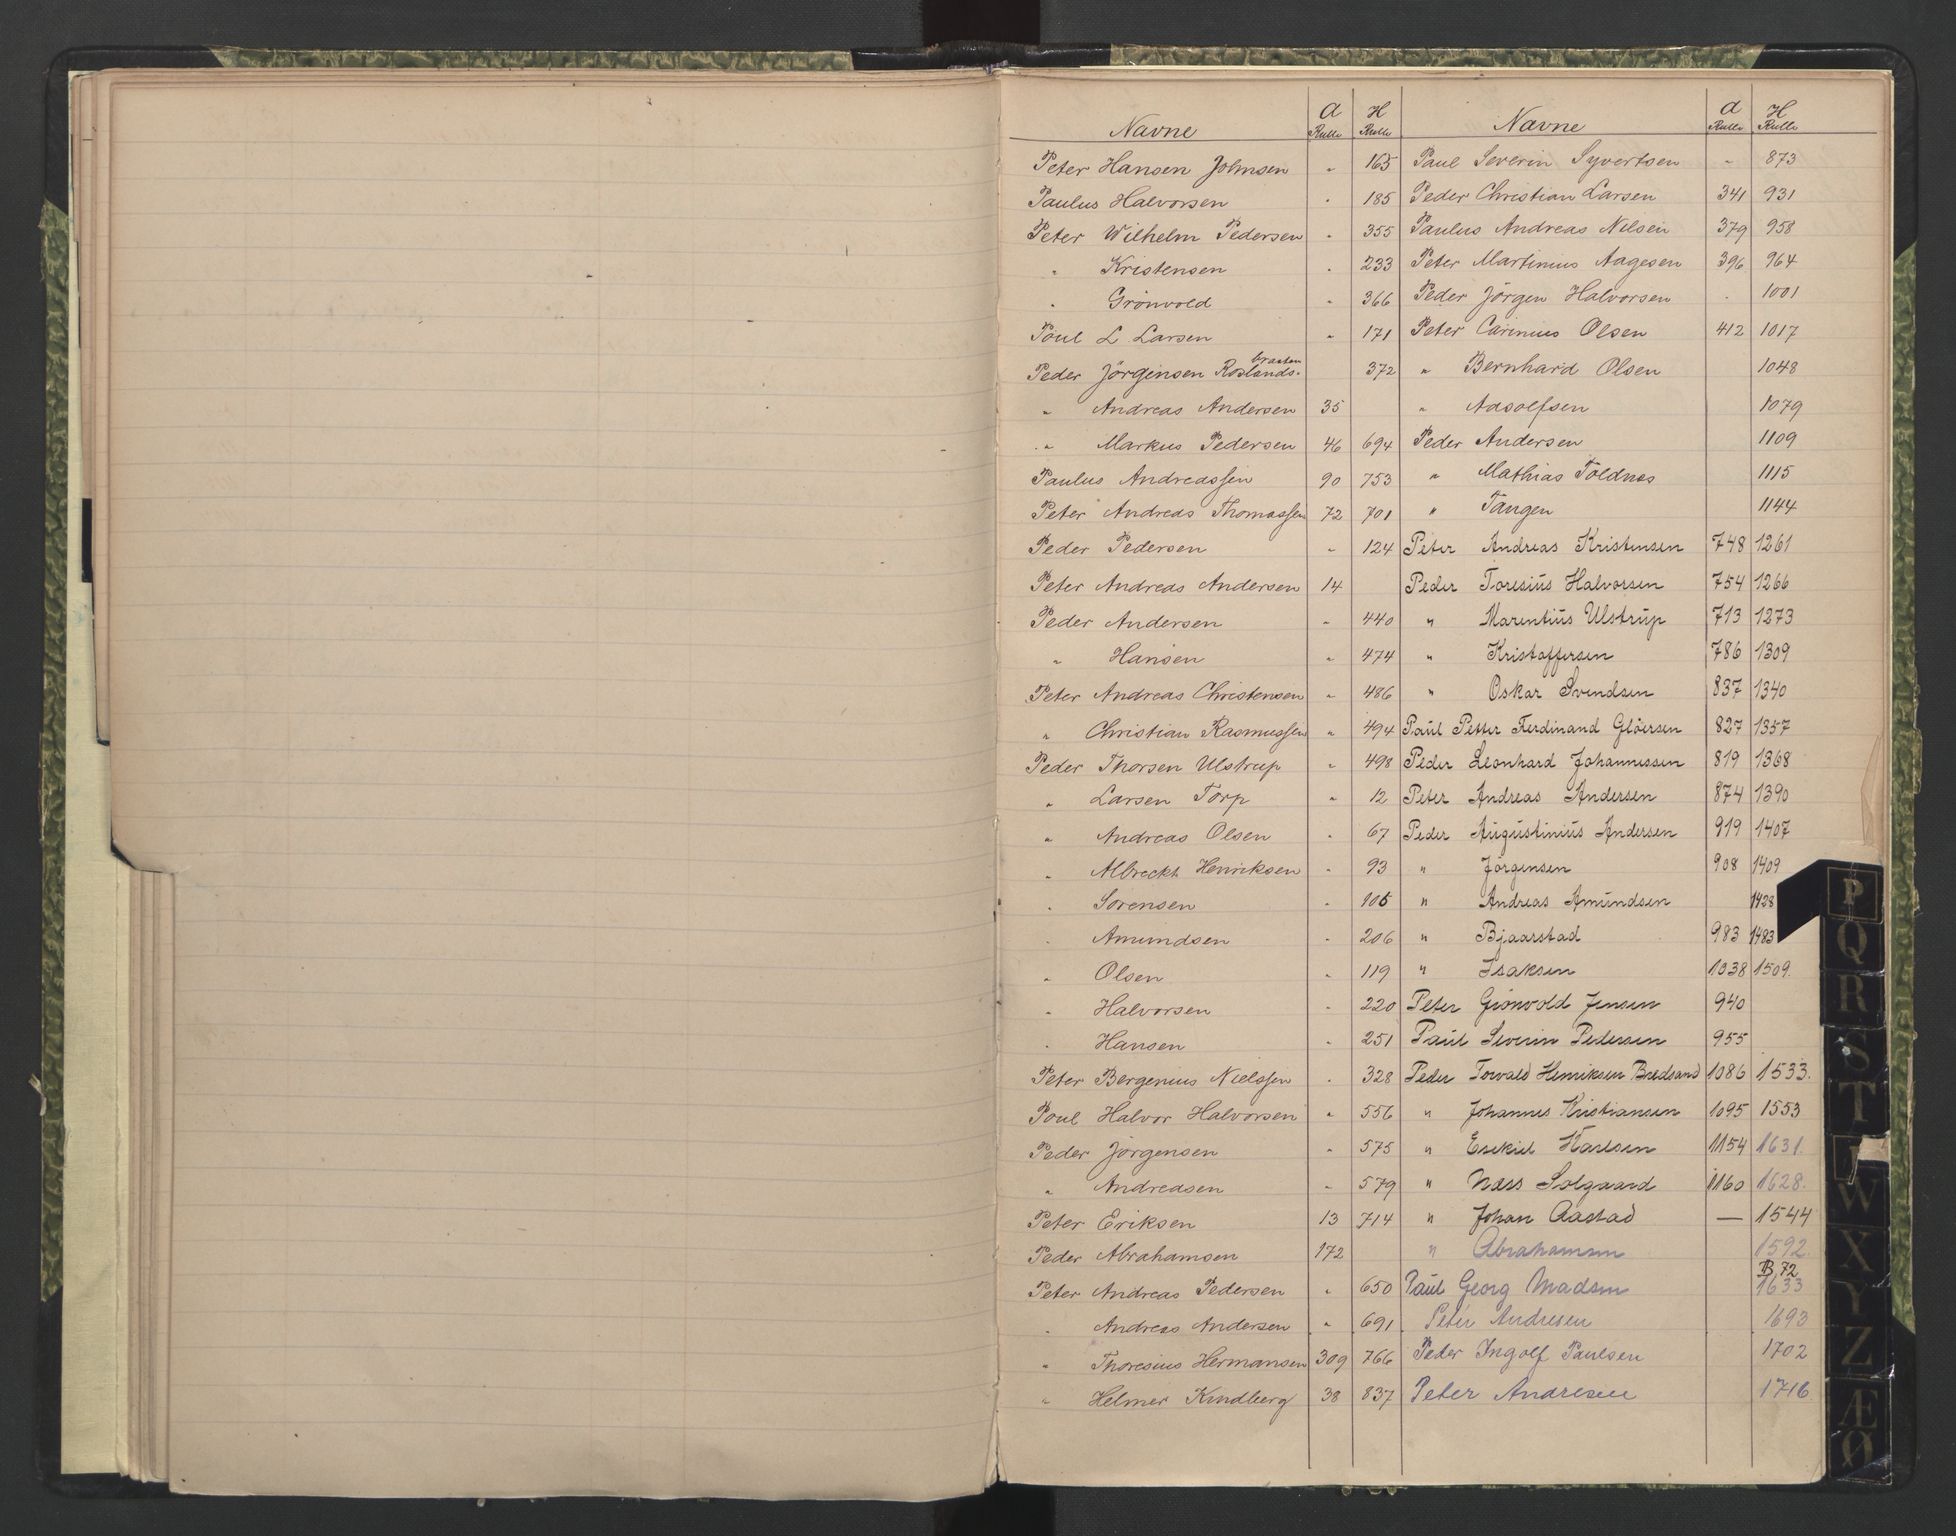 Navne a Rulle H Rulle
Peter Hansen Johnsen " 165
Paulus Halvorsen " 185
Peter Wilhelm Pedersen " 355
" Kristensen " 233
" Grönvold " 366
Poul L Larsen " 171
Peder Jörgensen Roslands- braaten 372
" Andreas Andersen 35
" Markus Pedersen 46 694
Paulus Andreassen 90 753
Peter Andreas Thomassen 72 701
Peder Pedersen " 124
Peter Andreas Andersen 14
Peder Andersen " 440
" Hansen " 474
Peter Andreas Christensen " 486
" Christian Rasmussen " 494
Peder Thorsen Ulstrup " 498
" Larsen Torp " 12
" Andreas Olsen " 67
" Albreckt Henriksen " 93
" Sörensen " 105
" Amundsen " 206
" Olsen " 119
" Halvorsen " 220
" Hansen " 251
Peter Bergenius Nielssen " 328
Poul Halvor Halvorsen " 556
Peder Jörgensen " 575
" Andreasen " 579
Peter Eriksen 13 714
Peder Abrahamsen 172
Peter Andreas Pedersen " 650
" Andreas Andersen " 691
" Thoresius Hermansen 309 766
" Helmer Kindberg 38 837
Navne a Rulle H Rulle
Paul Severin Syvertsen " 873
Peder Christian Larsen 341 931
Paulus Andreas Nilsen 379 958
Peter Martinius Aagesen 396 964
Peder Jörgen Halvorsen " 1001
Peter Carinius Olsen 412 1017
" Bernhard Olsen 1048
" Adolfsen 1079
Peder Andersen 1109
" Mathias Toldnes 1115
" Tangen 1144
Peter Andreas Kristensen 748 1261
Peder Toresius Halvorsen 754 1266
" Marentius Ulstrup 713 1273
" Kristoffersen 786 1309
" Oskar Svendsen 837 1340
Paul Petter Ferdinand Glöersen 827 1357
Peder Leonhard Johannessen 819 1368
Peter Andreas Andersen 874 1390
Peder Augustinius Andersen 919 1407
" Jörgensen 908 1409
" Andreas Amundsen 1428
" Bjaarstad 983 1483
" Isaksen 1038 1509.
Peter Grönvold Jensen 940
Paul Severin Pedersen 955
Peder Torvald Henriksen Bredsand 1086 1533.
" Johannes Kristiansen 1095 1553
" Esekiel Karlsen 1154 1631.
" Næss Solgaard 1160 1628.
" Johan Aastad — 1544
" Abrahamsen 1592.
B 72
Paul Georg Madsen 1633
Peter Andresen 1693
Peder Ingolf Paulsen 1702
Peter Andresen 1716
P
Q
R
S
T
W
X
Y
Z
Æ
Ø